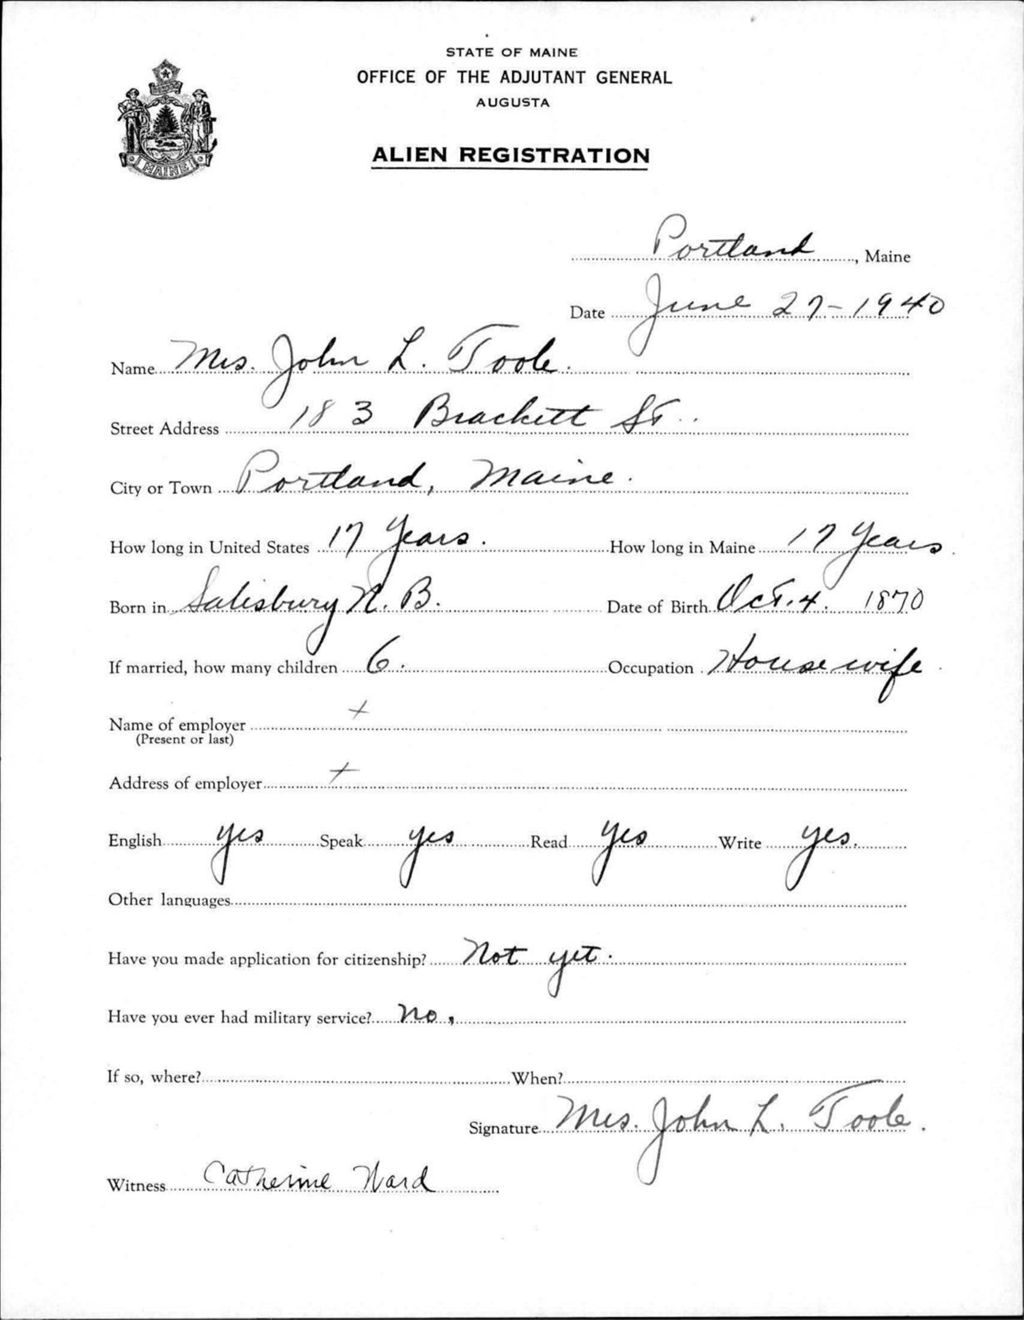 STATE OF MAINE
OFFICE OF THE ADJUTANT GENERAL
AUGUSTA
ALIEN REGISTRATION
MAINE
Portland, Maine
Date June 27-1940
Name Mrs. John L. Toole.
Street Address 183 Brackett St.
City or Town Portland, Maine.
How long in United States 17 Years. How long in Maine 17 Years.
Born in Salisbury N.B. Date of Birth Oct. 4. 1870
If married, how many children 6. Occupation Housewife.
Name of employer +
(Present or last)
Address of employer +
English yes Speak yes Read Yes Write yes.
Other languages
Have you made application for citizenship? Not yet.
Have you ever had military service? No.
If so, where? When?
Signature Mrs. John L. Toole.
Witness Catherine Ward